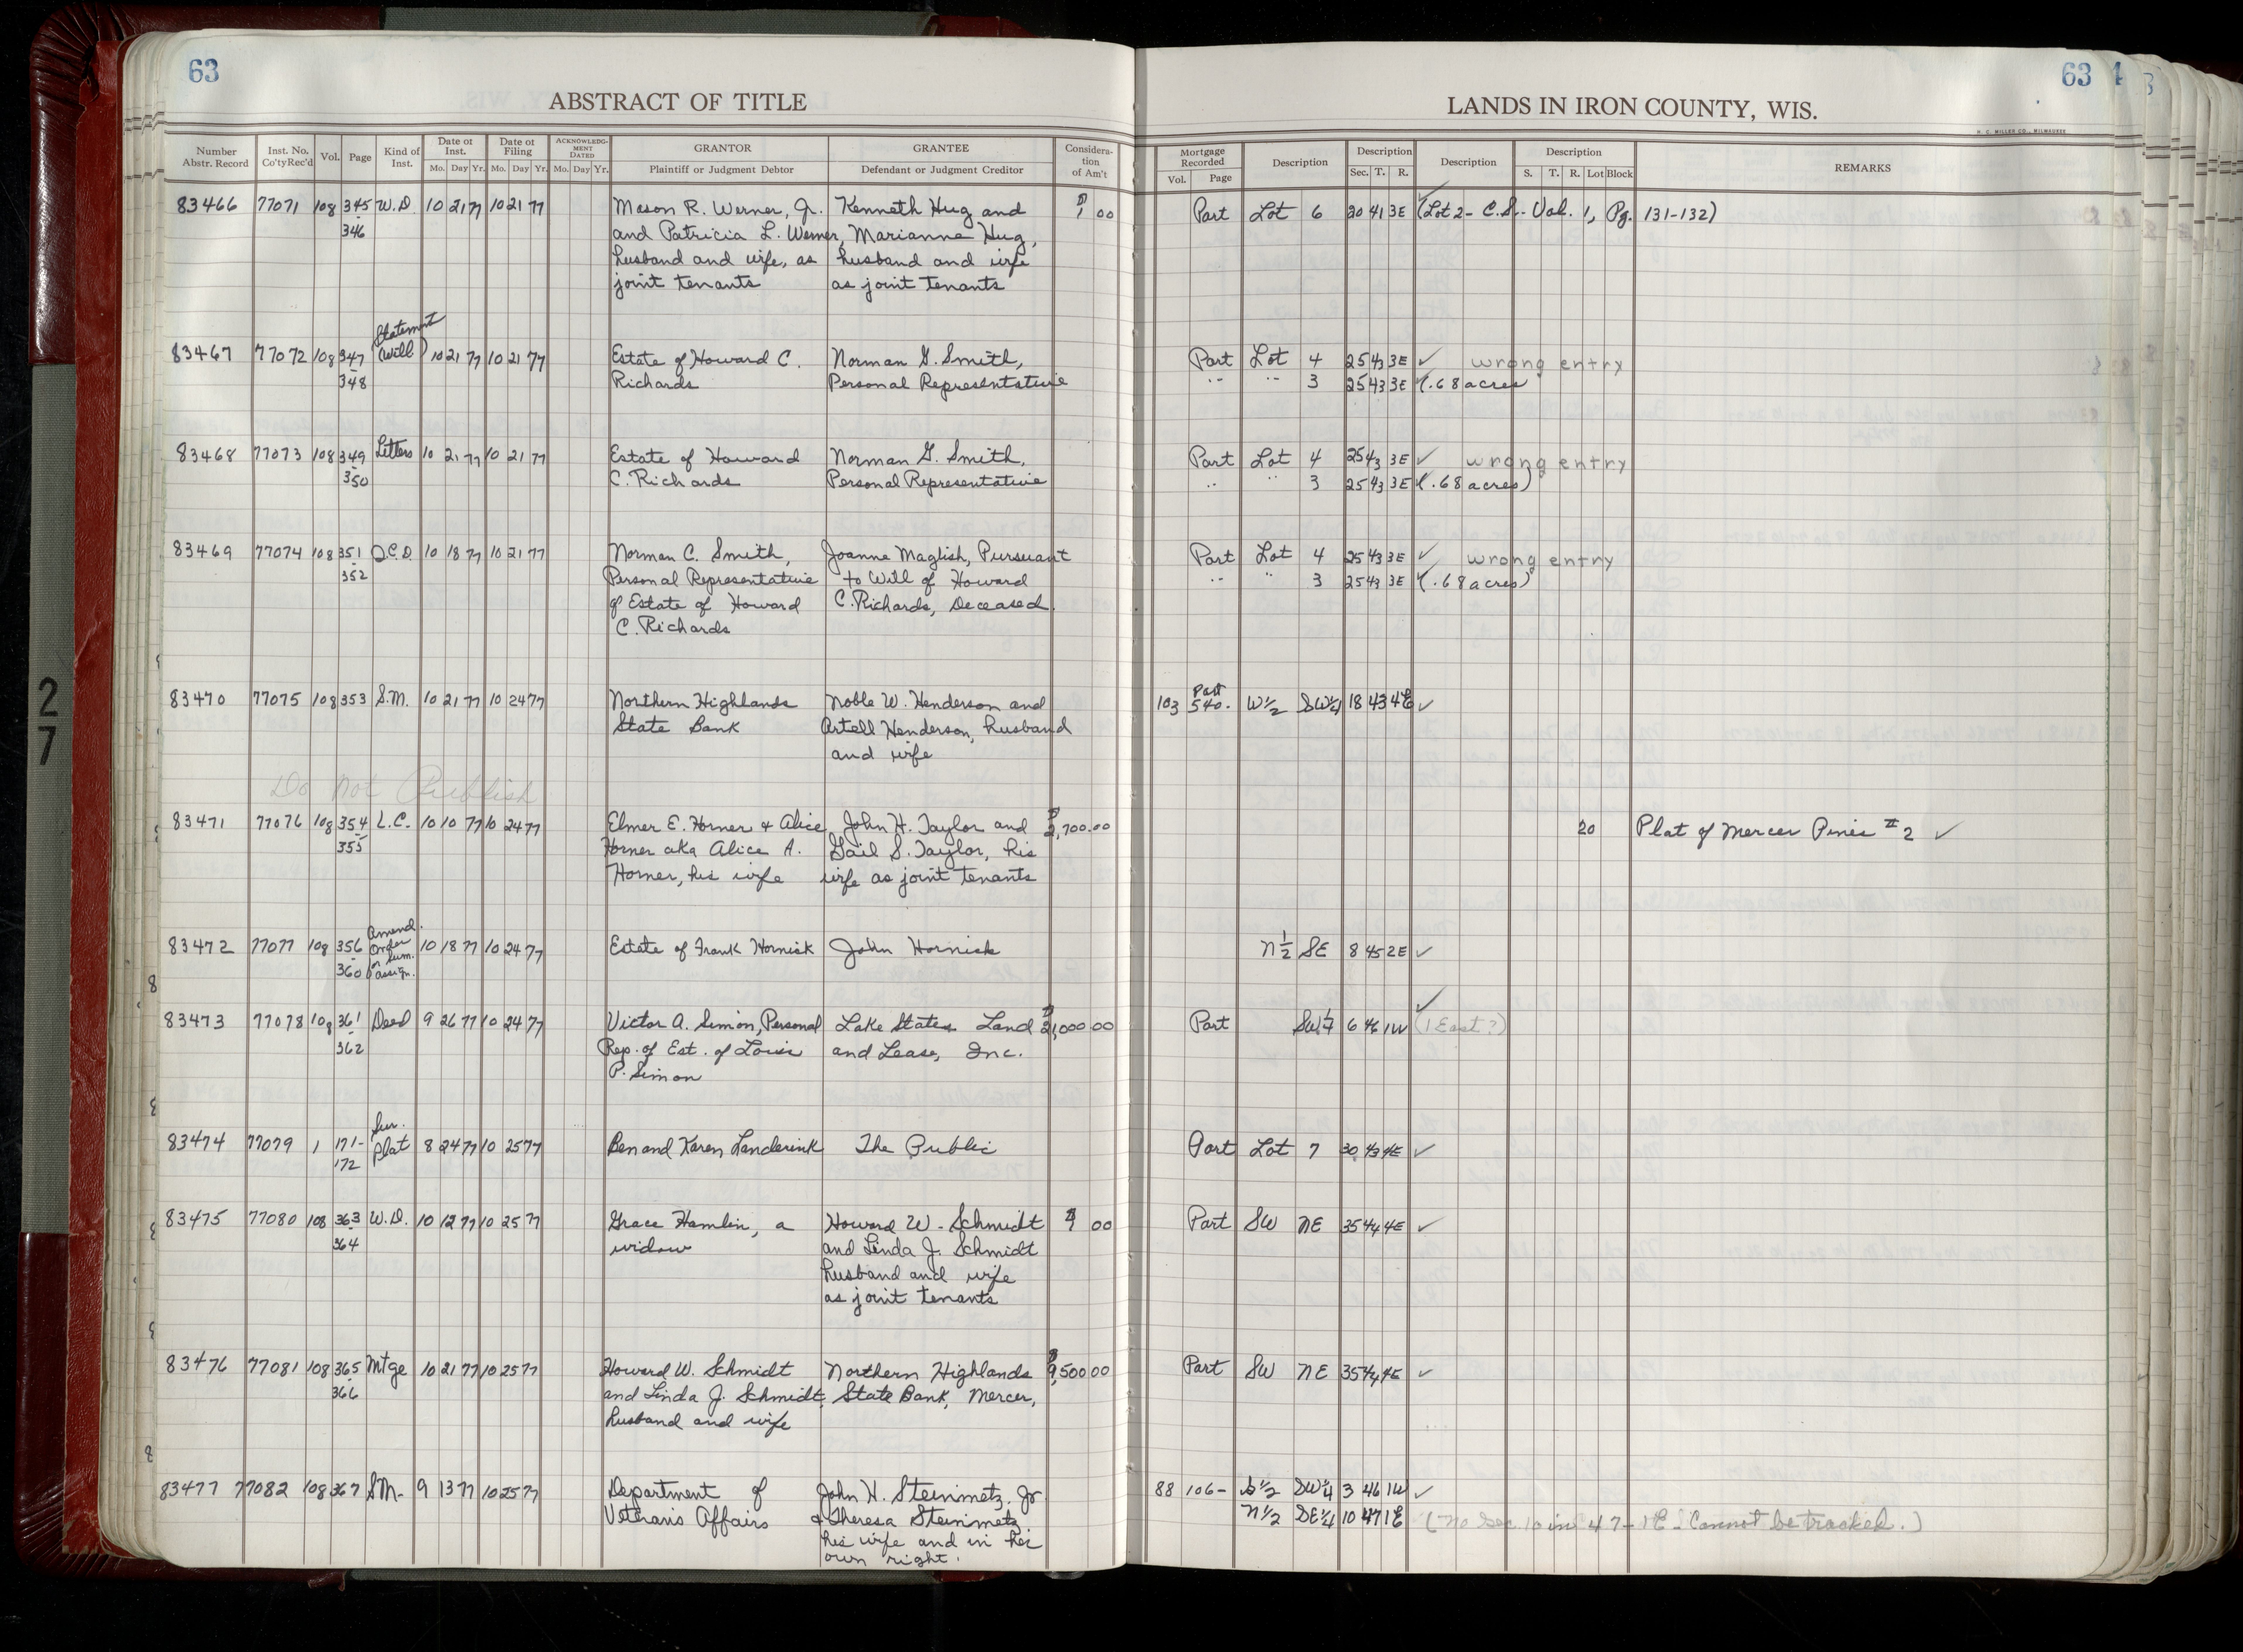 63
ABSTRACT OF TITLE
Number Abstr. Record Inst. No. Co'ty Rec'd Vol. Page Kind of Inst. Date of Inst. Mo. Day Yr. Date of Filing Mo. Day Yr. ACKNOWLEDGMENT DATED Mo. Day Yr. GRANTOR Plaintiff or Judgment Debtor GRANTEE Defendant or Judgment Creditor Consideration of Am't
63
LANDS IN IRON COUNTY, WIS.
H. C. MILLER CO., MILWAUKEE
Mortgage Recorded Vol. Page Description Description Sec. T. R. Description Description S. T. R. Lot Block REMARKS
83466 77071 108 345 W.D. 10 21 77 10 21 77 Mason R. Werner, Jr. Kenneth Hug and $1 00 Part Lot 6 20 41 3E (Lot 2 - C.S. - Vol. 1, Pg. 131-132)
346 and Patricia L. Werner, Marianne Hug,
husband and wife, as husband and wife
joint tenants as joint tenants
Statement
83467 77072 108 347 (Will) 10 21 77 10 21 77 Estate of Howard C. Norman G. Smith, Part Lot 4 25 43 3E ✓ wrong entry
348 Richards Personal Representative " " 3 25 43 3E ✓(.68 acres
83468 77073 108 349 Letters 10 21 77 10 21 77 Estate of Howard Norman G. Smith, Part Lot 4 25 43 3E ✓ wrong entry
350 C. Richards Personal Representative " " 3 25 43 3E ✓(.68 acres)
83469 77074 108 351 D.C.D. 10 18 77 10 21 77 Norman C. Smith, Joanne Maglish, Pursuant Part Lot 4 25 43 3E ✓ wrong entry
352 Personal Representative to Will of Howard " " 3 25 43 3E ✓(.68 acres)
of Estate of Howard C. Richards, Deceased.
C. Richards
Part
83470 77075 108 353 S.M. 10 21 77 10 24 77 Northern Highlands Noble W. Henderson and 103 540- W½ SW¼ 18 43 4E ✓
State Bank Artell Henderson, husband
and wife
Do Not Publish
83471 77076 108 354 L.C. 10 10 77 10 24 77 Elmer E. Horner & Alice John H. Taylor and $2,700.00 20 Plat of Mercer Pines #2 ✓
355 Horner aka Alice A. Gail S. Taylor, his
Horner, his wife wife as joint tenants
Amend.
83472 77077 108 356 Order 10 18 77 10 24 77 Estate of Frank Hornick John Hornick N½ SE 8 45 2E ✓
on Sum.
360 assign.
83473 77078 108 361 Deed 9 26 77 10 24 77 Victor A. Simon, Personal Lake States Land 000 00 Part 6 46 1W (1 East?) ✓
362 Rep. of Est. of Louis and Lease, Inc.
P. Simon
Sur.
83474 77079 1 171- Plat 8 24 77 10 25 77 Ben and Karen Landerink The Public Part Lot 7 30 43 4E ✓
172
83475 77080 108 363 W.D. 10 12 77 10 25 77 Grace Hamlin, a Howard W. Schmidt $1 00 Part SW NE 35 44 4E ✓
364 widow and Linda J. Schmidt
husband and wife
as joint tenants
83476 77081 108 365 Mtge 10 21 77 10 25 77 Howard W. Schmidt Northern Highlands $9,500 00 Part SW NE 35 44 4E ✓
366 and Linda J. Schmidt, State Bank, Mercer,
husband and wife
83477 77082 108 367 S.M. 9 13 77 10 25 77 Department of John H. Steinmetz, Jr 88 106- S½ SW¼ 3 46 1W ✓
Veterans Affairs & Theresa Steinmetz N½ SE¼ 10 47 1E (No Sec. 10 in 47-1E - Cannot be tracked.)
his wife and in her
own right.
27